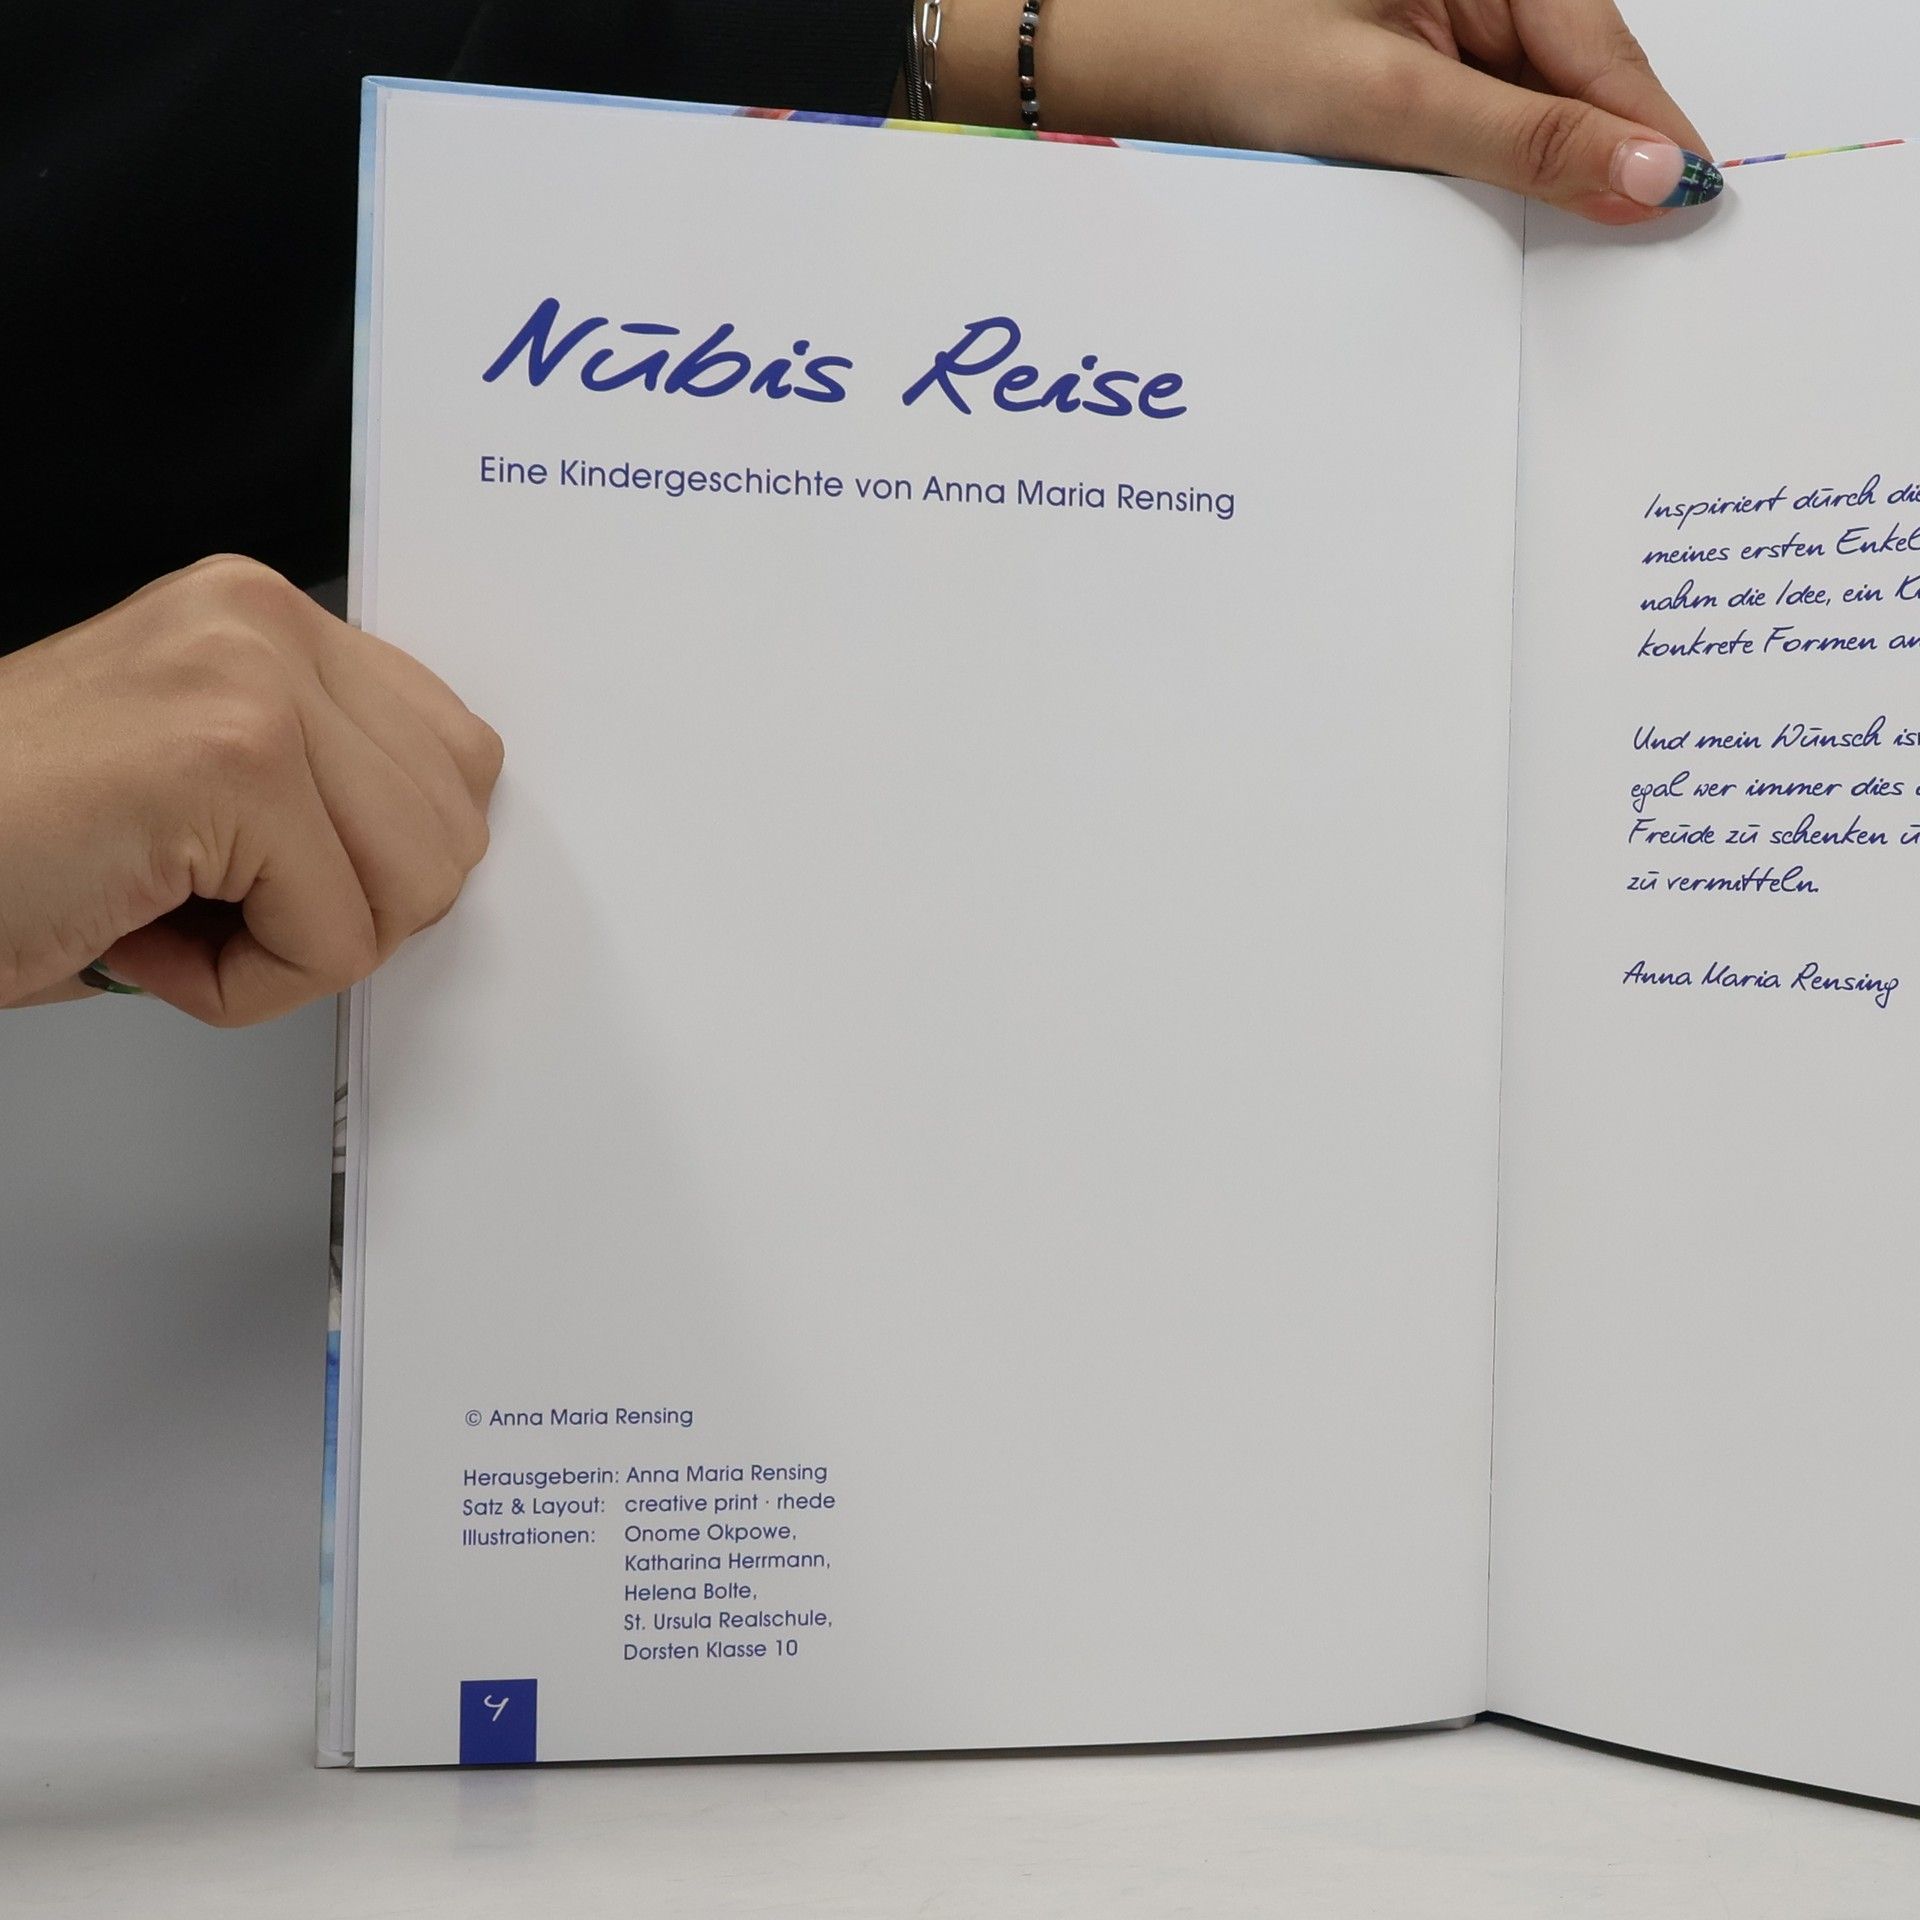 Nūbis Reise
Eine Kindergeschichte von Anna Maria Rensing
© Anna Maria Rensing
Herausgeberin: Anna Maria Rensing
Satz & Layout: creative print · rhede
Illustrationen: Onome Okpowe,
Katharina Herrmann,
Helena Bolte,
St. Ursula Realschule,
Dorsten Klasse 10
4
Inspiriert dūrch die
meines ersten Enkel
nahm die Idee, ein
konkrete Formen
Und mein Wūnsch
egal wer immer dies
Freūde zū schenken
zū vermitteln.
Anna Maria Rensing